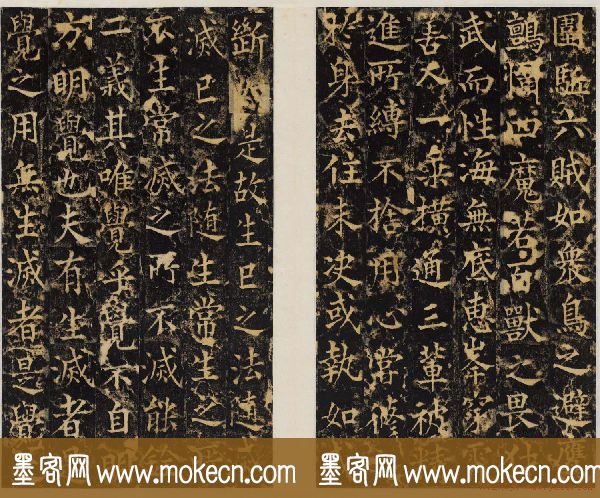 六賊如衆鳥之避鷹
四魔若百獸之畏
武而性海無底惠
善 一乘橫通三輩被
進所縛不捨用心當脩
於身去住未決或執如
斷 是故生已之法随
滅已之法随生常生之
不生常滅之所不滅能
二義其唯覺乎覺不自
方明覺也夫有生滅者
覺之用無生滅者是覺
墨客网 www.mokecn.com 墨客网 www.mokecn.com